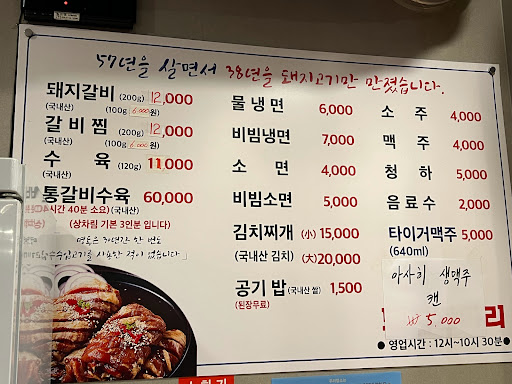 57년을 살면서 38년을 돼지고기만 만졌습니다.
돼지갈비 (200g) 12,000
(국내산) (100g 6.000원)
갈비찜 (200g) 12,000
(국내산) (100g 6.000원)
수육 (120g) 11,000
(국내산)
통갈비수육 60,000
시간 40분 소요)(국내산)
(상차림 기본 3인분 입니다)
물냉면 6,000
비빔냉면 7,000
소면 4,000
비빔소면 5,000
김치찌개 (小) 15,000
(국내산 김치) (大) 20,000
공기밥 (국내산 쌀) 1,500
(된장무료)
소주 4,000
맥주 4,000
청하 5,000
음료수 2,000
타이거맥주 5,000
(640ml)
아사히 생맥주
캔
₩ 5,000
리
● 영업시간 : 12시~10시 30분 ●